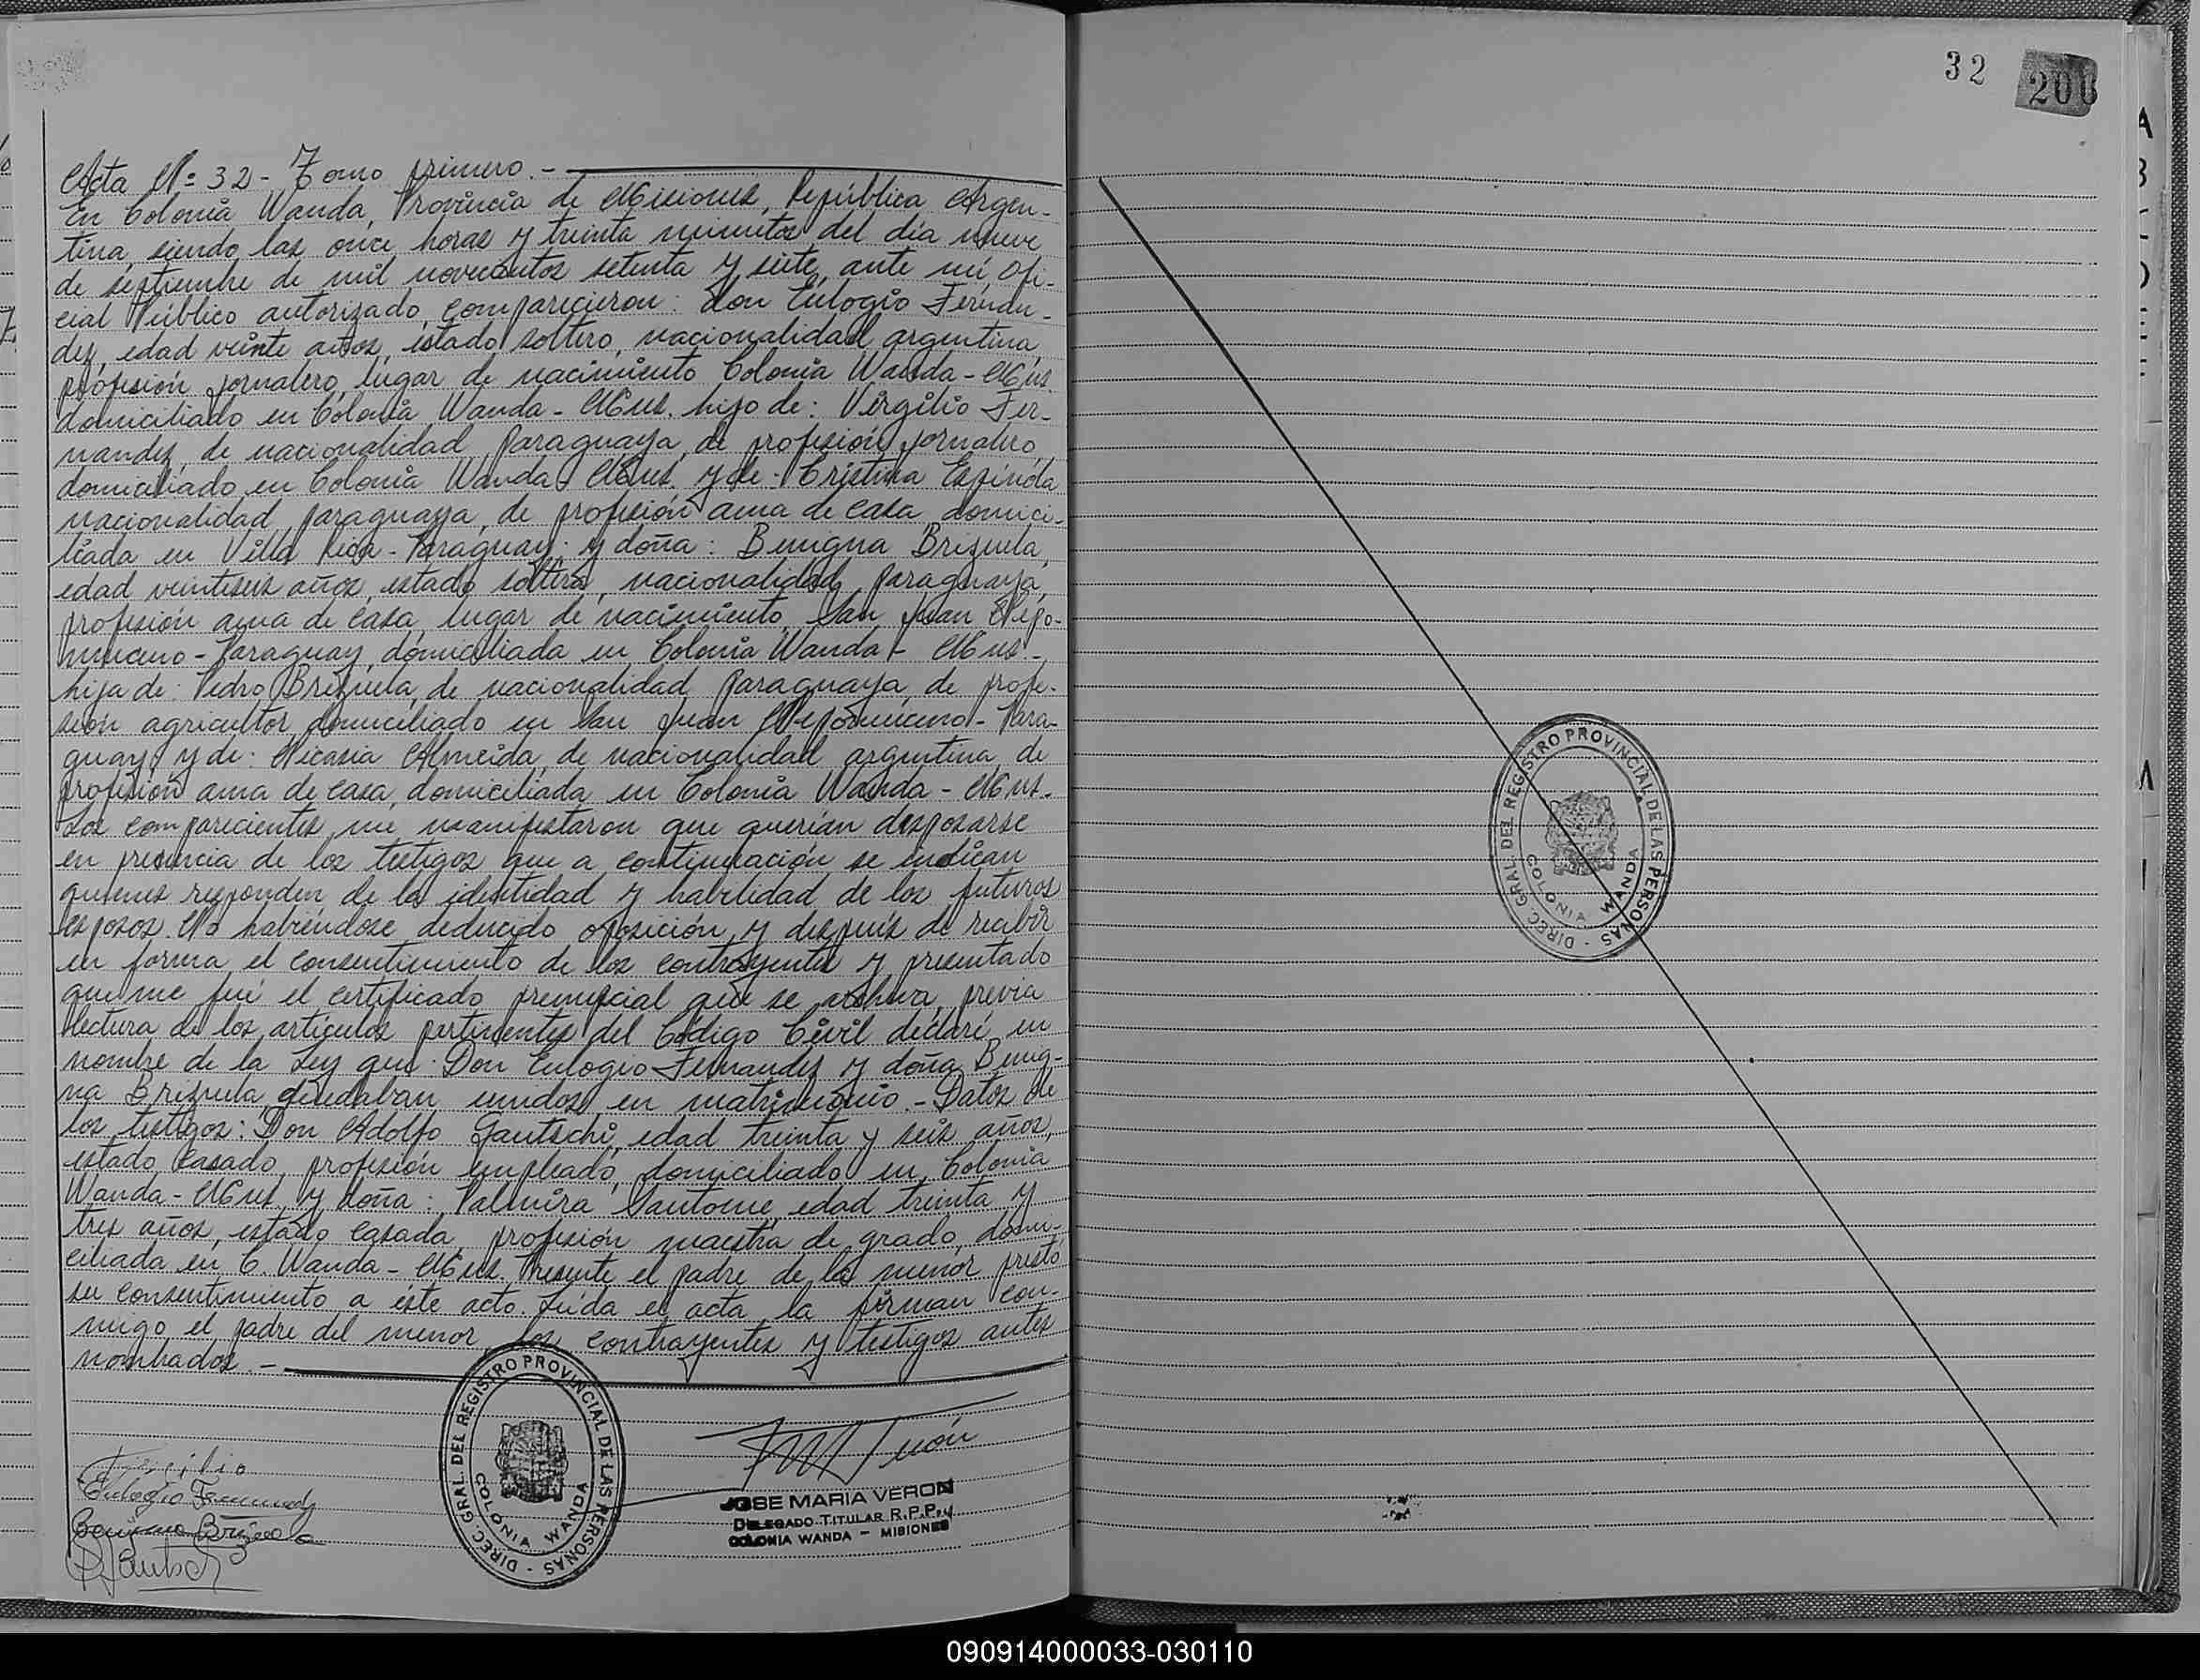 Acta Nº 32 - Tomo primero. -
En Colonia Wanda, Provincia de Misiones, República Argen-
tina, siendo las once horas y treinta minutos del día nueve
de septiembre de mil novecientos setenta y siete, ante mí, Ofi-
cial Público autorizado, comparecieron: don Eulogio Fernán-
dez, edad veinte años, estado soltero, nacionalidad argentina,
profesión jornalero, lugar de nacimiento Colonia Wanda - Mnes.
domiciliado en Colonia Wanda - Mnes. hijo de: Virgilio Fer-
nandez, de nacionalidad paraguaya, de profesión jornalero,
domiciliado en Colonia Wanda Mnes. y de: Cristina Espínola
nacionalidad paraguaya, de profesión ama de casa domici-
liada en Villa Rica - Paraguay; y doña: Benigna Brizuela,
edad veintiseis años, estado soltera, nacionalidad paraguaya,
profesión ama de casa, lugar de nacimiento, San Juan Nepo-
muceno - Paraguay, domiciliada en Colonia Wanda - Mnes. -
hija de: Pedro Brizuela, de nacionalidad paraguaya, de profe-
sión agricultor domiciliado en San Juan Nepomuceno - Para-
guay; y de: Nicasia Almeida, de nacionalidad argentina, de
profesión ama de casa, domiciliada en Colonia Wanda - Mnes.
Los comparecientes me manifestaron que querían desposarse
en presencia de los testigos que a continuación se indican
quienes responden de la identidad y habilidad de los futuros
esposos. No habiéndose deducido oposición y después de recibir
en forma el consentimiento de los contrayentes y presentado
que me fué el certificado prenupcial que se archiva, previa
lectura de los artículos pertinentes del Código Civil declaré en
nombre de la Ley que: Don Eulogio Fernandez y doña Benig-
na Brizuela quedaban unidos en matrimonio. - Datos de
los testigos: Don Adolfo Gautschi, edad treinta y seis años,
estado casado, profesión empleado, domiciliado en Colonia
Wanda - Mnes. y doña: Palmira Santome, edad treinta y
tres años, estado casada, profesión maestra de grado, domi-
ciliada en C. Wanda - Mnes. Presente el padre de la menor prestó
su consentimiento a este acto. Leída el acta, la firman con-
migo, el padre del menor, los contrayentes y testigos antes
nombrados. -
Eulogio Fernandez
Benigna Brizuela
DIREC. GRAL. DEL REGISTRO PROVINCIAL DE LAS PERSONAS -
COLONIA WANDA
JOSE MARIA VERON
DELEGADO TITULAR R.P.P.
COLONIA WANDA - MISIONES
32
200
DIREC. GRAL. DEL REGISTRO PROVINCIAL DE LAS PERSONAS -
COLONIA WANDA
090914000033-030110